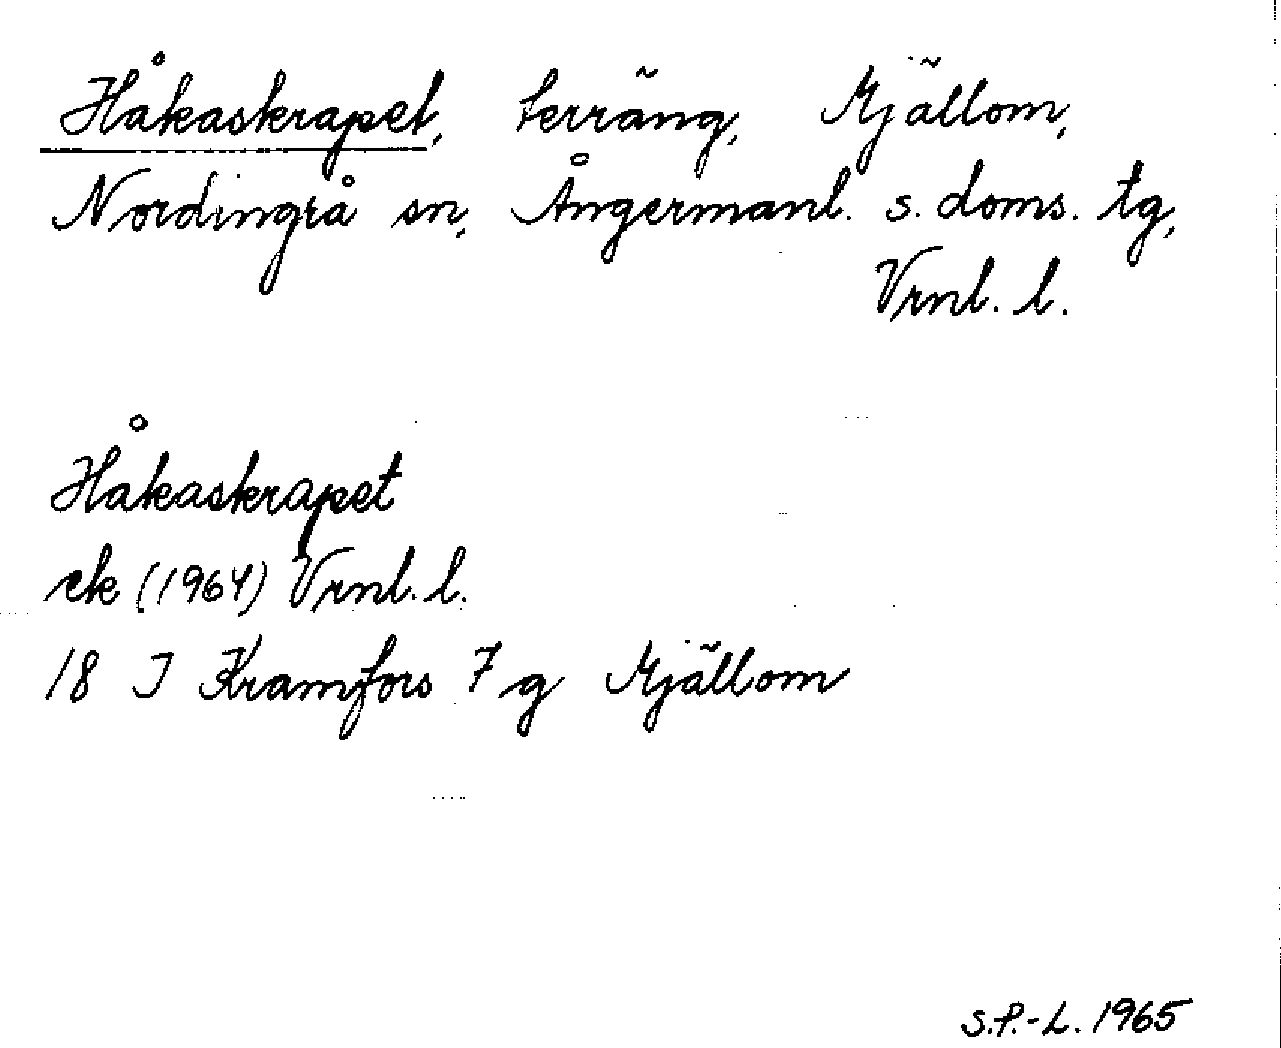 Håkaskrapet, terräng, Mjällom,
Nordingrå sn, Ångermanl. s. doms. tg,
Vrnl. l.
Håkaskrapet
ek (1964) Vrnl. l.
18 J Kramfors 7 g Mjällom
S.P.-L. 1965